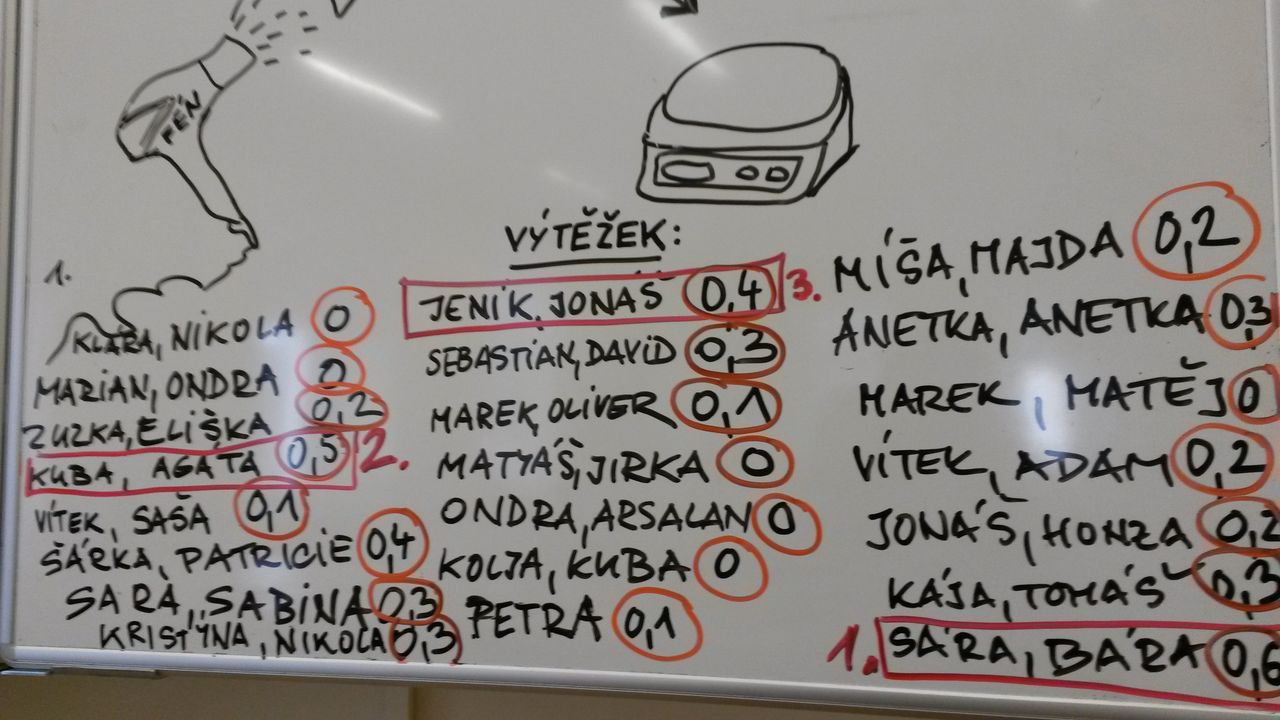 FÉN
VÝTĚŽEK:
1.
KLÁRA, NIKOLA 0
MARIAN, ONDRA 0
ZUZKA, ELIŠKA 0,2
KUBA, AGÁTA 0,5 2.
VÍTEK, SAŠA 0,1
ŠÁRKA, PATRICIE 0,4
SÁRA, SABINA 0,3
KRISTÝNA, NIKOLA 0,3
JENÍK, JONÁŠ 0,4 3.
SEBASTIAN, DAVID 0,3
MAREK, OLIVER 0,1
MATYÁŠ, JIRKA 0
ONDRA, ARSALAN 0
KOLJA, KUBA 0
PETRA 0,1
MÍŠA, MAJDA 0,2
ANETKA, ANETKA 0,3
MAREK, MATĚJ 0
VÍTEK, ADAM 0,2
JONÁŠ, HONZA 0,2
KÁJA, TOMÁŠ 0,3
1. SÁRA, BÁRA 0,6